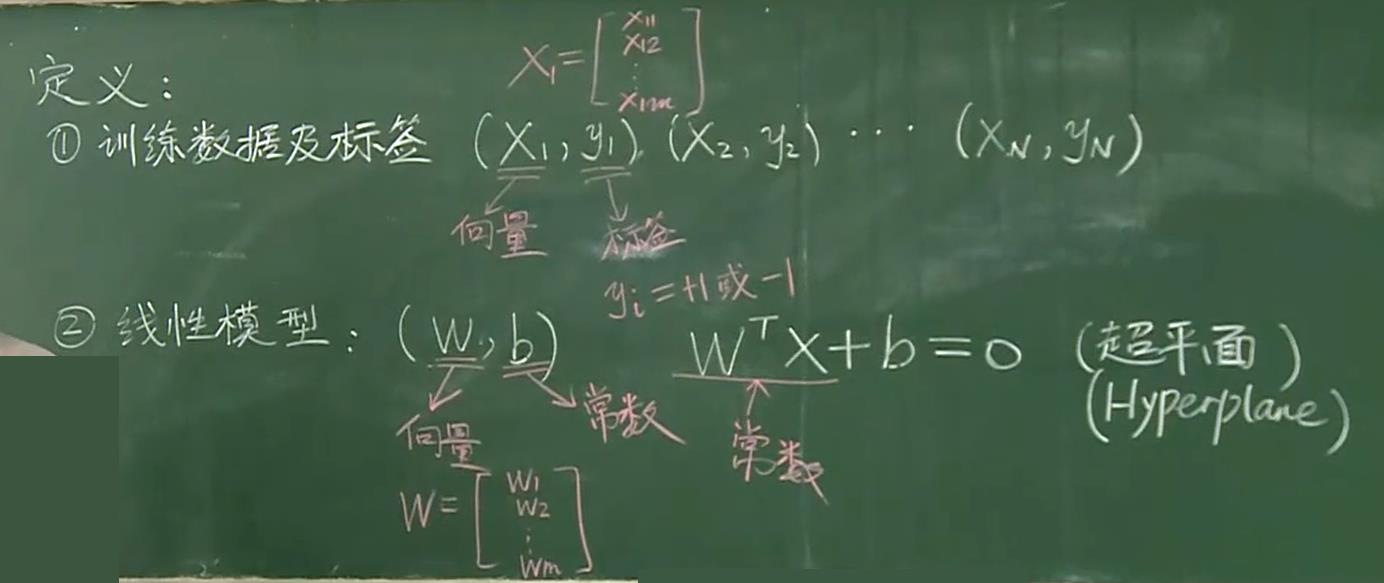 定义：
X₁=[x₁₁ x₁₂ ⋮ x₁ₘ]
① 训练数据及标签 (X₁, y₁) (X₂, y₂) ··· (X_N, y_N)
向量 标签
yᵢ=+1或-1
② 线性模型：(W, b) WᵀX+b=0 (超平面)
(Hyperplane)
向量 常数 常数
W=[W₁ W₂ ⋮ Wₘ]